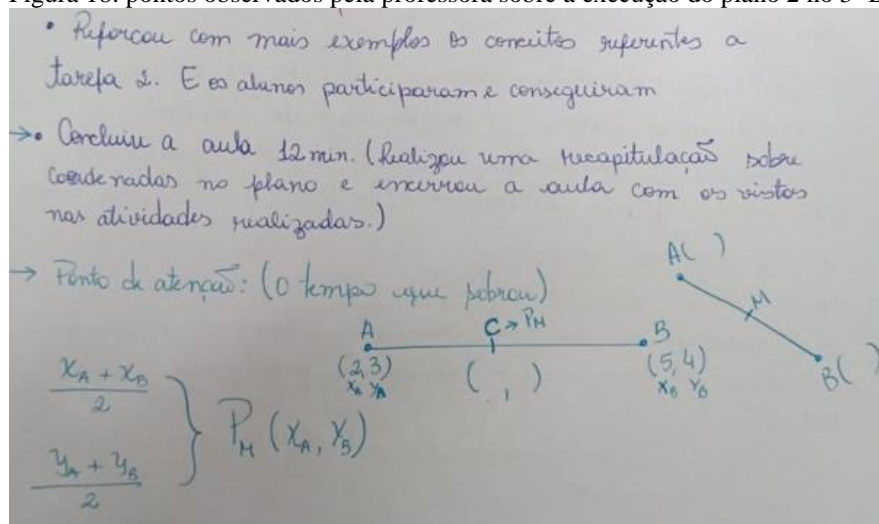 Figura 18: pontos observados pela professora sobre a execução do plano 2 no 3º
• Reforçou com mais exemplos os conceitos referentes a
tarefa 2. E os alunos participaram e conseguiram
→• Concluiu a aula 12 min. (Realizou uma recapitulação sobre
coordenadas no plano e encerrou a aula com os vistos
nas atividades realizadas.)
→ Ponto de atenção: (O tempo que sobrou)
A( )
M
B( )
A C → PM B
(2,3) ( , ) (5,4)
XA YA XB YB
XA + XB
2
YA + YB
2
} PM (XA, YB)